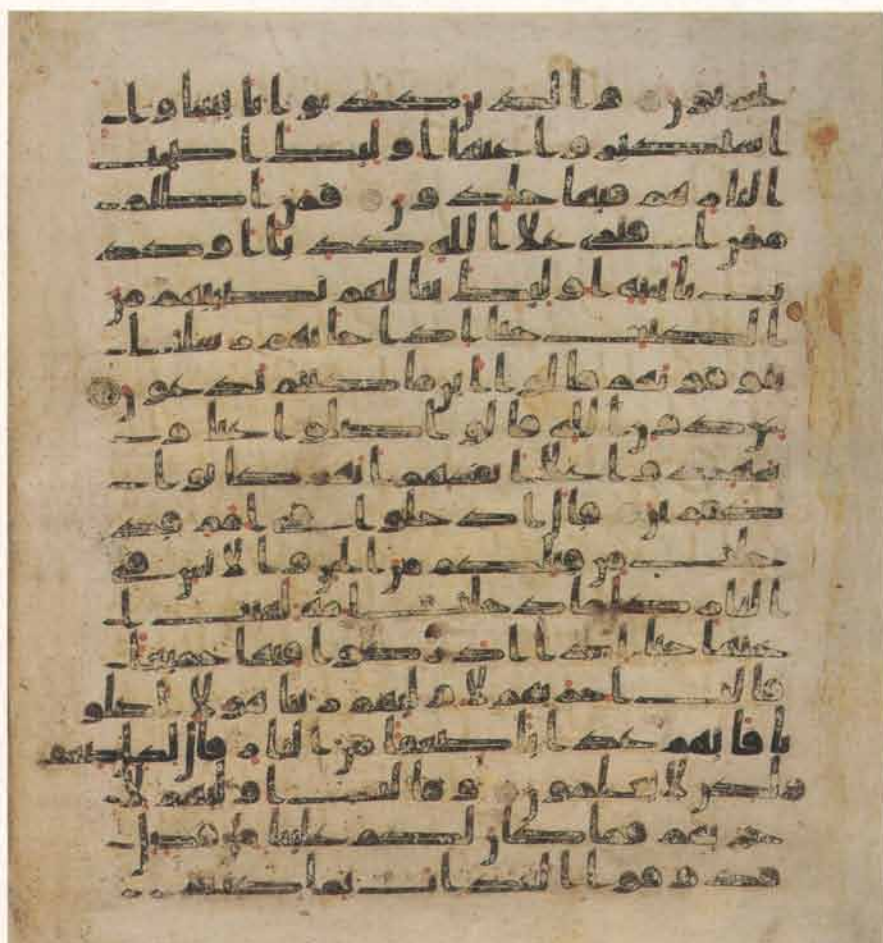 حزنون والذين كذبوا باىتنا وا
ستكبروا عنها اولئك اصحب
النار هم فيها خلدون فمن اظلم
ممن افترى على الله كذبا او كذ
ب باىته اولئك ينالهم نصيبهم من
الكتب حتى اذا جاتهم رسلنا
يتوفونهم قالوا اين ما كنتم تدعون
من دون الله قالوا ضلوا عنا و
شهدوا على انفسهم انهم كانوا
كفرين قال ادخلوا في امم قد
خلت من قبلكم من الجن والانس في
النار كلما دخلت امة لعنت ا
ختها حتى اذا اداركوا فيها جميعا
قالت اخريهم لاوليهم ربنا هولا اضلو
نا فاتهم عذابا ضعفا من النار قال لكل ضعف
ولكن لا تعلمون وقالت اوليهم لا
خريهم فما كان لكم علينا من فضل
فذوقوا العذاب بما كنتم